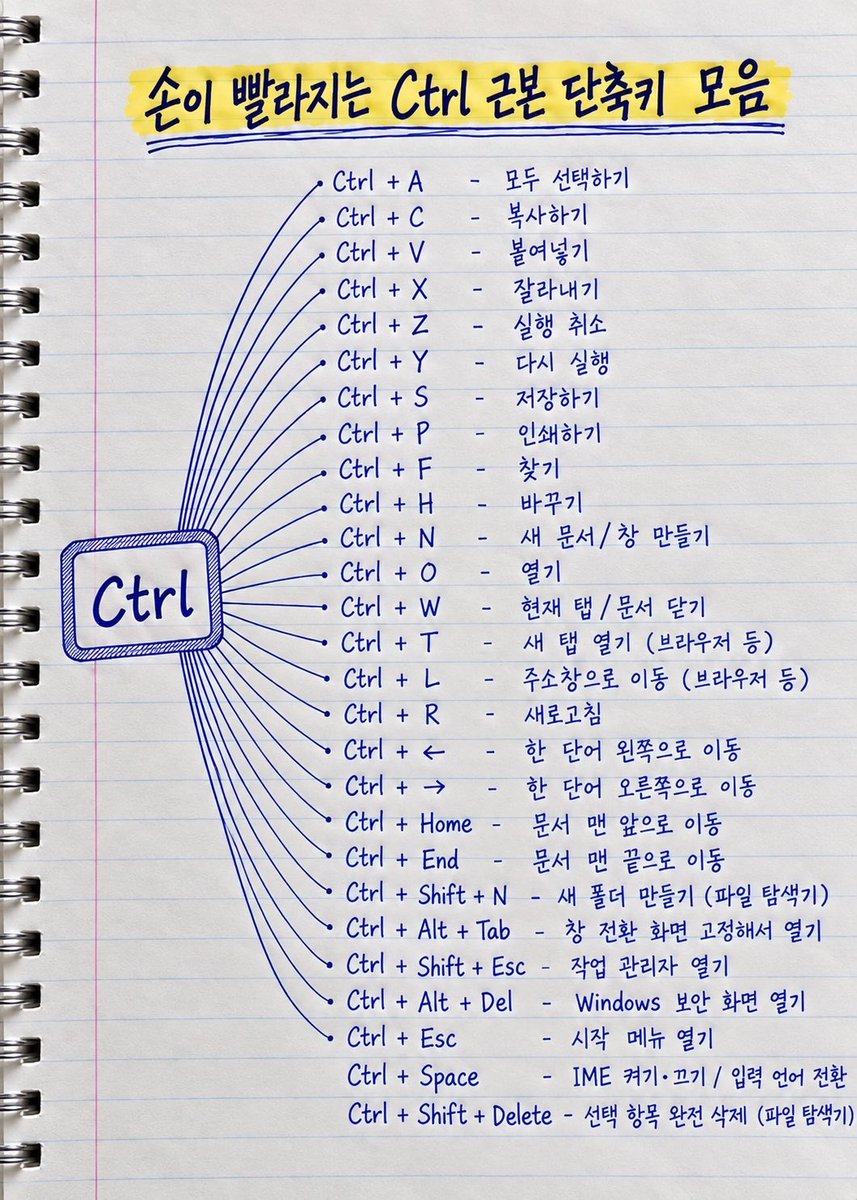 손이 빨라지는 Ctrl 근본 단축키 모음
Ctrl
Ctrl + A - 모두 선택하기
Ctrl + C - 복사하기
Ctrl + V - 볼여넣기
Ctrl + X - 잘라내기
Ctrl + Z - 실행 취소
Ctrl + Y - 다시 실행
Ctrl + S - 저장하기
Ctrl + P - 인쇄하기
Ctrl + F - 찾기
Ctrl + H - 바꾸기
Ctrl + N - 새 문서/창 만들기
Ctrl + O - 열기
Ctrl + W - 현재 탭/문서 닫기
Ctrl + T - 새 탭 열기 (브라우저 등)
Ctrl + L - 주소창으로 이동 (브라우저 등)
Ctrl + R - 새로고침
Ctrl + ← - 한 단어 왼쪽으로 이동
Ctrl + → - 한 단어 오른쪽으로 이동
Ctrl + Home - 문서 맨 앞으로 이동
Ctrl + End - 문서 맨 끝으로 이동
Ctrl + Shift + N - 새 폴더 만들기 (파일 탐색기)
Ctrl + Alt + Tab - 창 전환 화면 고정해서 열기
Ctrl + Shift + Esc - 작업 관리자 열기
Ctrl + Alt + Del - Windows 보안 화면 열기
Ctrl + Esc - 시작 메뉴 열기
Ctrl + Space - IME 켜기·끄기 / 입력 언어 전환
Ctrl + Shift + Delete - 선택 항목 완전 삭제 (파일 탐색기)